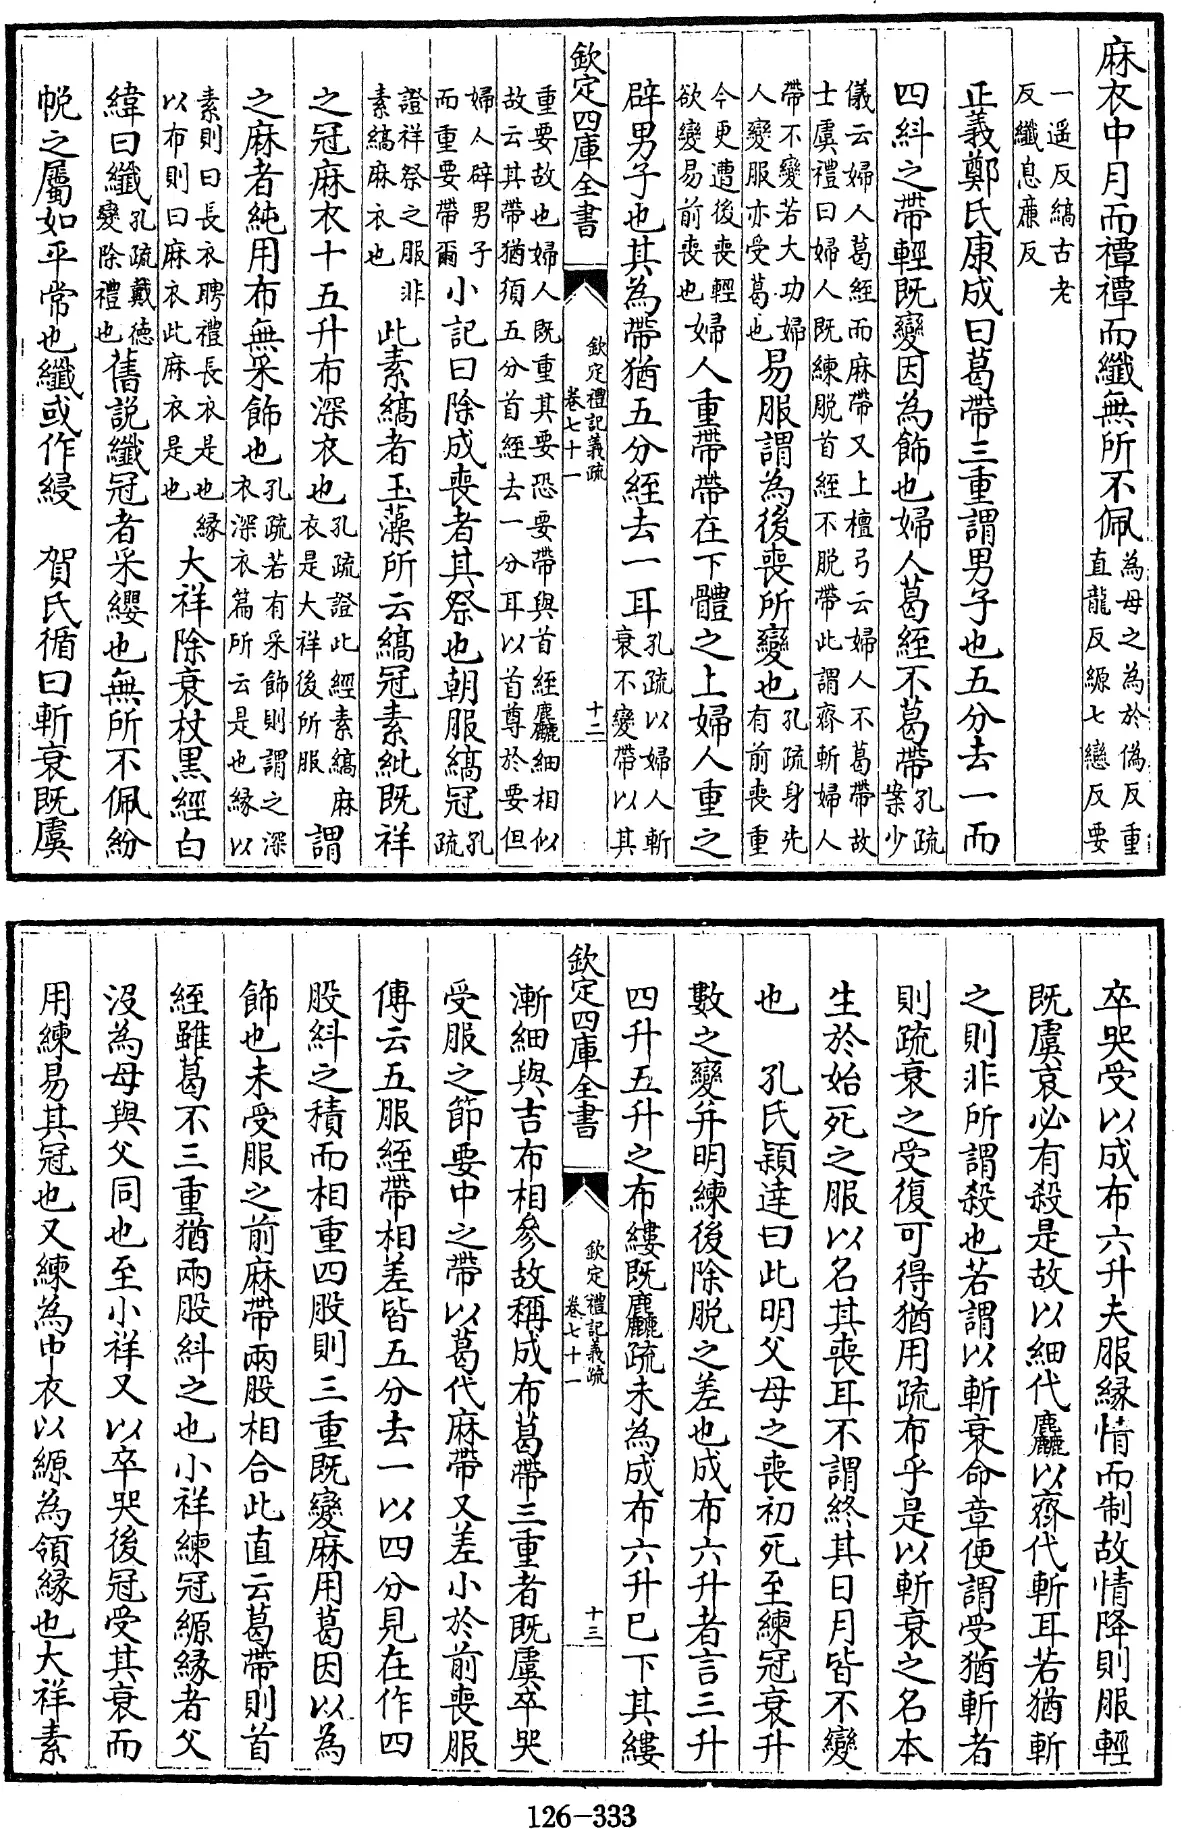 麻衣中月而禫禫而纖無所不佩為母之為於偽反重
直龍反縓七戀反要
一遥反縞古老
反纖息亷反
正義鄭氏康成曰葛帶三重謂男子也五分去一而
四糾之帶輕既變因為飾也婦人葛絰不葛帶孔疏
案少
儀云婦人葛絰而麻帶又上檀弓云婦人不葛帶故
士虞禮曰婦人既練脱首絰不脱帶此謂齊斬婦人
帶不變若大功婦
人變服亦受葛也易服謂為後喪所變也孔疏身先
有前喪重
今更遭後喪輕
欲變易前喪也婦人重帶帶在下體之上婦人重之
辟男子也其為帶猶五分絰去一耳孔疏以婦人斬
衰不變帶以其
欽定四庫全書
欽定禮記義疏
卷七十一
十二
重要故也婦人既重其要恐要帶與首絰麤細相似
故云其帶猶須五分首絰去一分耳以首尊於要但
婦人辟男子
而重要帶爾小記曰除成喪者其祭也朝服縞冠孔
疏
證祥祭之服非
素縞麻衣也此素縞者玉藻所云縞冠素紕既祥
之冠麻衣十五升布深衣也孔疏證此經素縞麻
衣是大祥後所服謂
之麻者純用布無采飾也孔疏若有采飾則謂之深
衣深衣篇所云是也緣以
素則曰長衣聘禮長衣是也緣
以布則曰麻衣此麻衣是也大祥除衰杖黒絰白
緯曰纖孔疏戴德
變除禮也舊説纖冠者采纓也無所不佩紛
帨之屬如平常也纖或作綅 賀氏循曰斬衰既虞
卒哭受以成布六升夫服緣情而制故情降則服輕
既虞哀必有殺是故以細代麤以齊代斬耳若猶斬
之則非所謂殺也若謂以斬衰命章便謂受猶斬者
則疏衰之受復可得猶用疏布乎是以斬衰之名本
生於始死之服以名其喪耳不謂終其日月皆不變
也 孔氏穎達曰此明父母之喪初死至練冠衰升
數之變并明練後除脱之差也成布六升者言三升
四升五升之布縷既麤疏未為成布六升已下其縷
欽定四庫全書
欽定禮記義疏
卷七十一
十三
漸細與吉布相參故稱成布葛帶三重者既虞卒哭
受服之節要中之帶以葛代麻帶又差小於前喪服
傳云五服絰帶相差皆五分去一以四分見在作四
股糾之積而相重四股則三重既變麻用葛因以為
飾也未受服之前麻帶兩股相合此直云葛帶則首
絰雖葛不三重猶兩股糾之也小祥練冠縓緣者父
沒為母與父同也至小祥又以卒哭後冠受其衰而
用練易其冠也又練為中衣以縓為領緣也大祥素
126-333